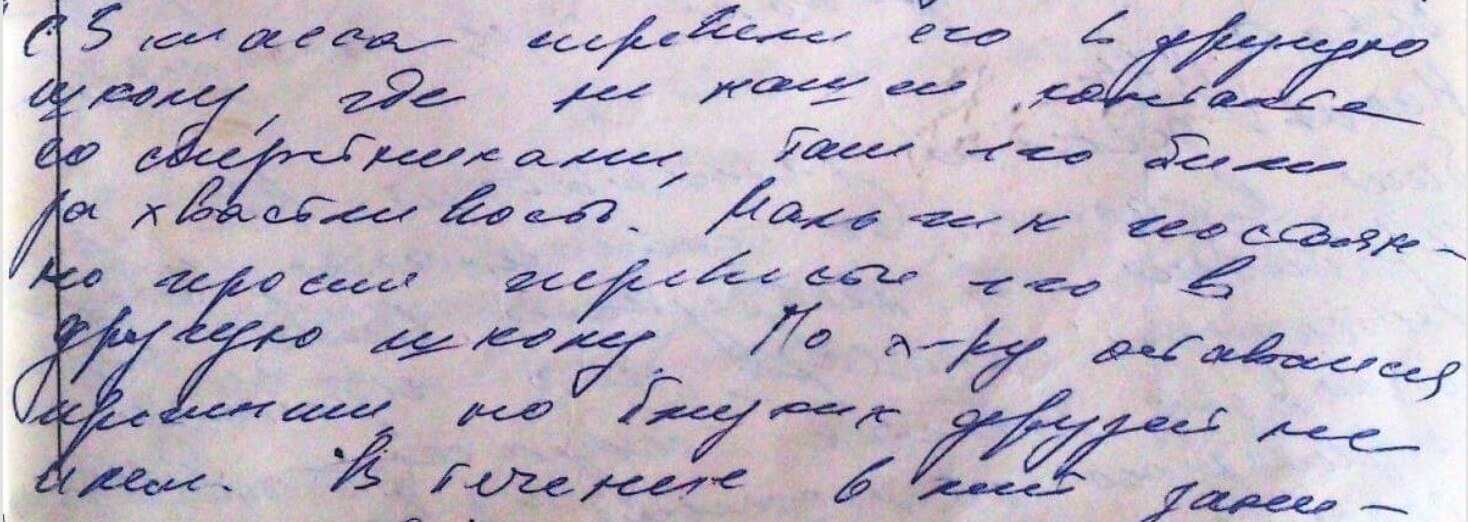 с 5 класса перевели его в другую
школу, где не нашел контакта
со сверстниками, там его били
за хвастливость. Мальчик постоян-
но просил перевести его в
другую школу. По х-ру оставался
прежним, но близких друзей не
имел. В течение 6 лет зани-